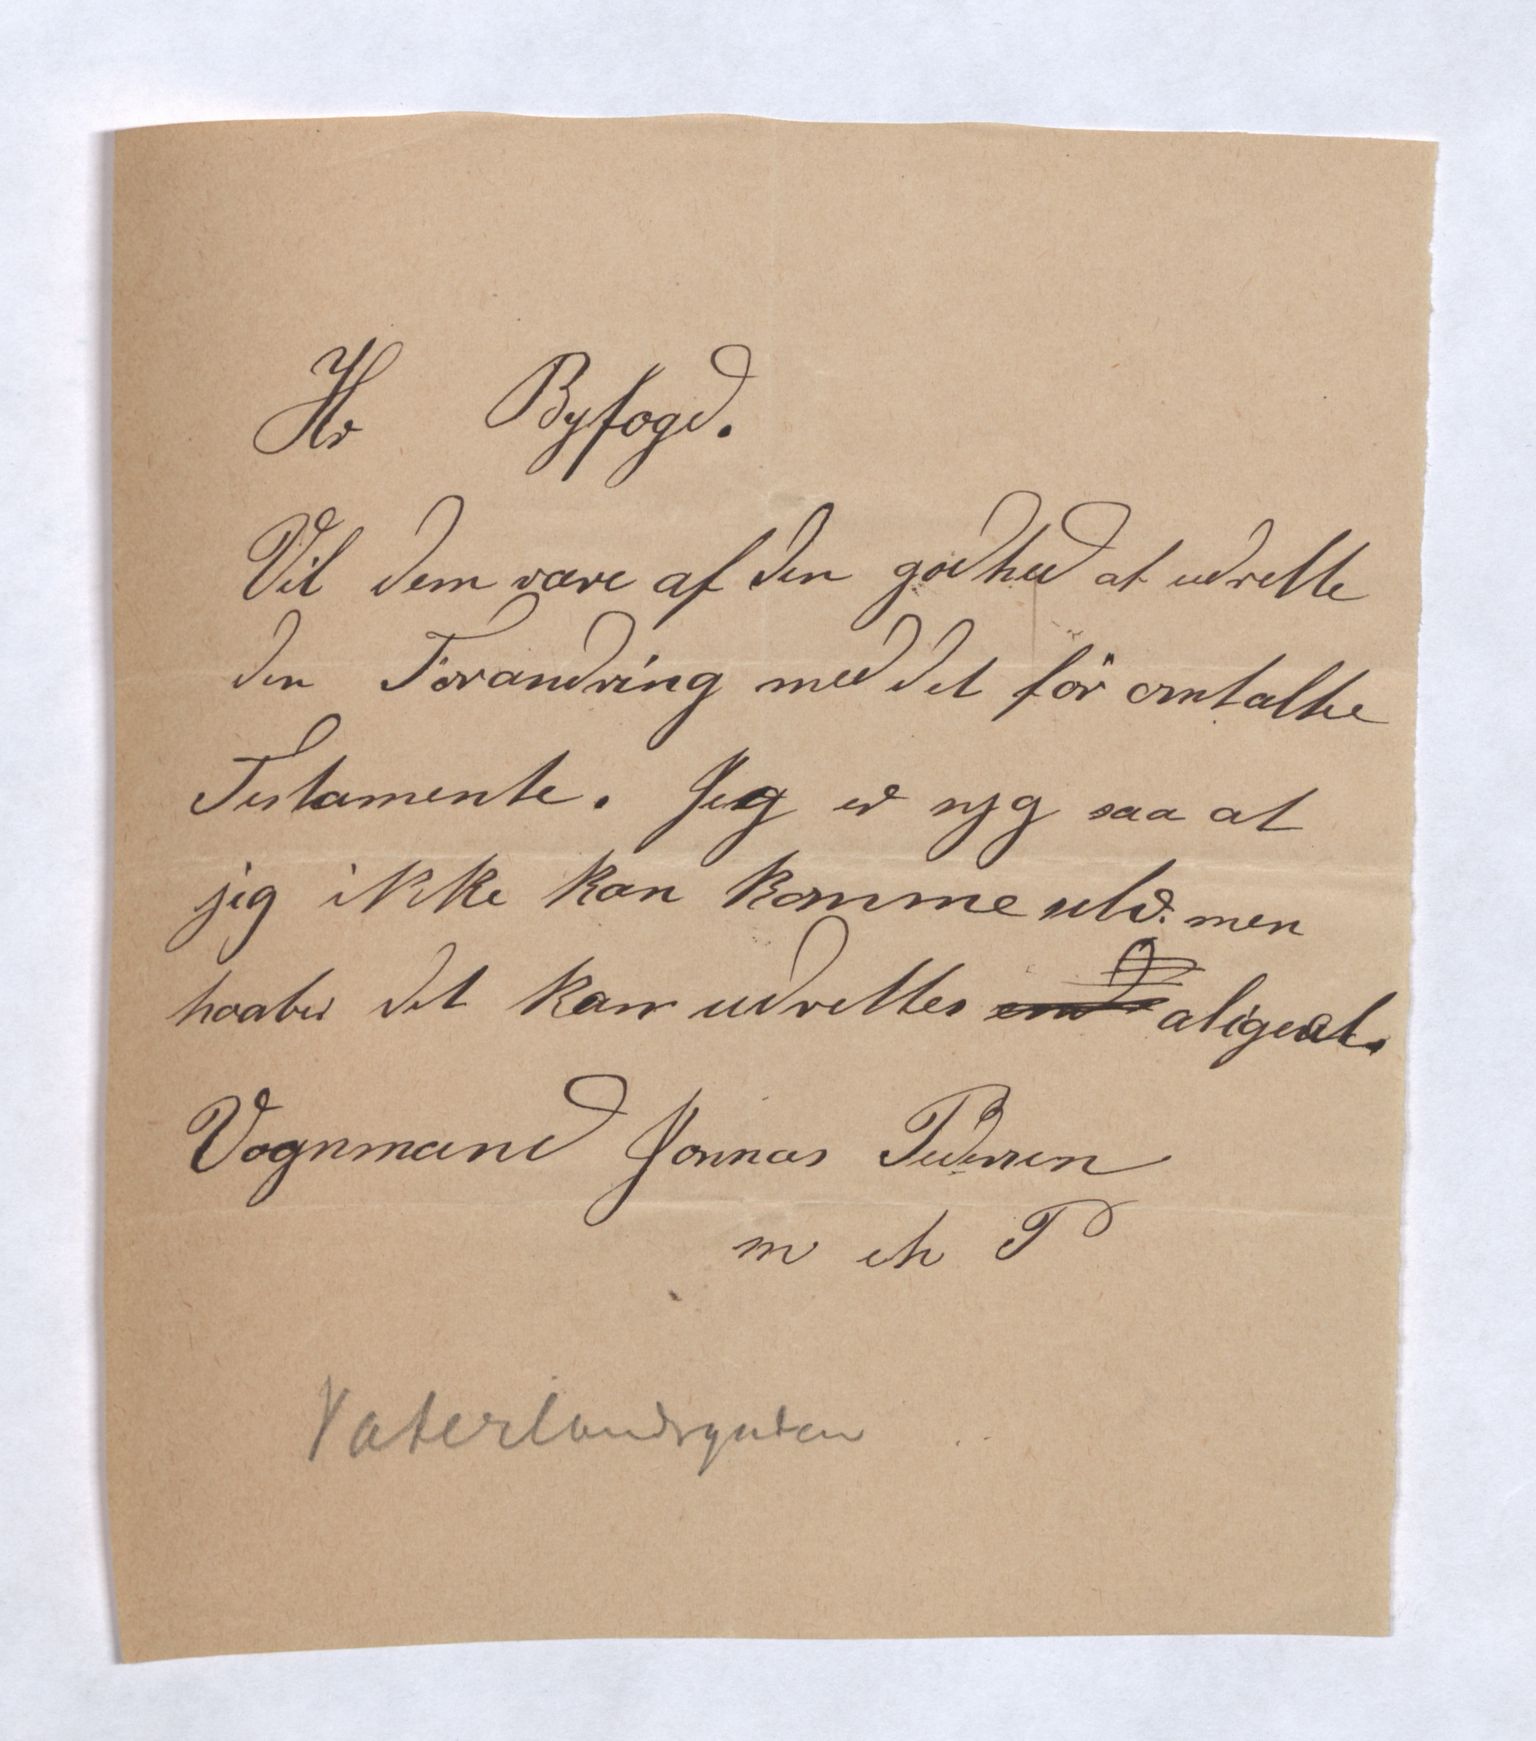 Hr Byfogd.
Vil dem være af den godhed at udrette
den Forandring med det før omtalte
Testamente. Jeg er syg saa at
jeg ikke kan komme ud. men
haaber det kan udrettes aligevel.
Vognmand Jonnas Pedersen
m eh P
Vaterlandsgaten